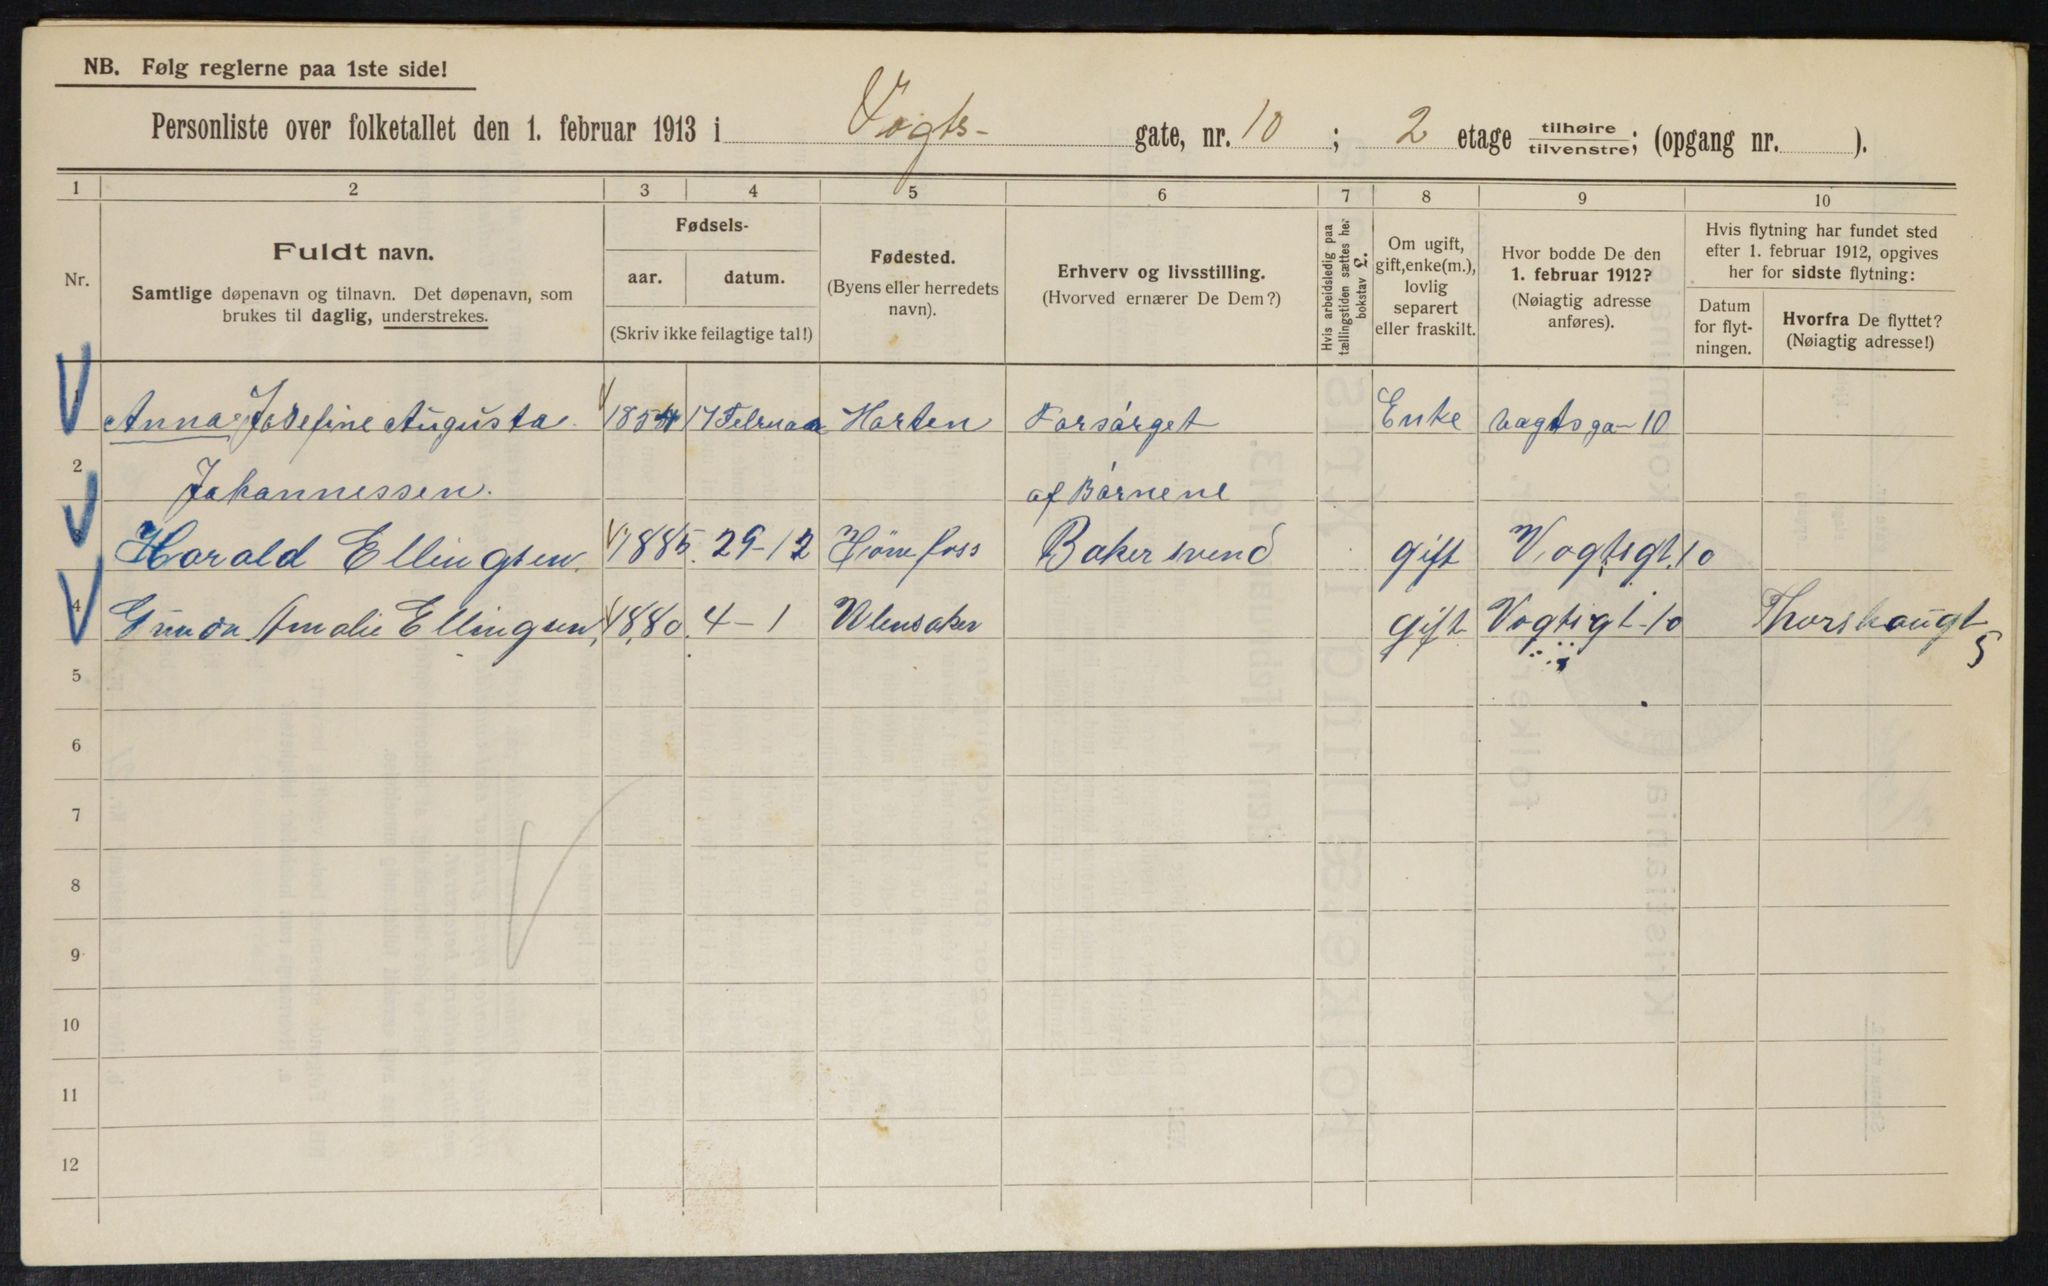 NB. Følg reglerne paa 1ste side!
Personliste over folketallet den 1. februar 1913 i Vogts- gate, nr. 10 ; 2 etage tilhøire / tilvenstre; (opgang nr. ).
1 2 3 4 5 6 7 8 9 10
Nr.
Fuldt navn.
Samtlige døpenavn og tilnavn. Det døpenavn, som
brukes til daglig, understrekes.
Fødsels-
aar. datum.
(Skriv ikke feilagtige tal!)
Fødested.
(Byens eller herredets
navn).
Erhverv og livsstilling.
(Hvorved ernærer De Dem?)
Hvis arbeidsledig paa
tællingstiden sættes her
bokstav L.
Om ugift,
gift, enke(m.),
lovlig
separert
eller fraskilt.
Hvor bodde De den
1. februar 1912?
(Nøiagtig adresse
anføres).
Hvis flytning har fundet sted
efter 1. februar 1912, opgives
her for sidste flytning:
Datum
for flyt-
ningen.
Hvorfra De flyttet?
(Nøiagtig adresse!)
1 Anna Josefine Augusta 1854 17 Februar Horten Forsørget Enke Vogtsga- 10
2 Johannessen. af Børnene
3 Harald Ellingsen. 1885. 29-12 Hønefoss Baker svend gift Vogtsgt. 10
4 Gunda Amalie Ellingsen, 1880. 4-1 Ulensaker gift Vogtsgt-10 Thorshaugt
5
5
6
7
8
9
10
11
12